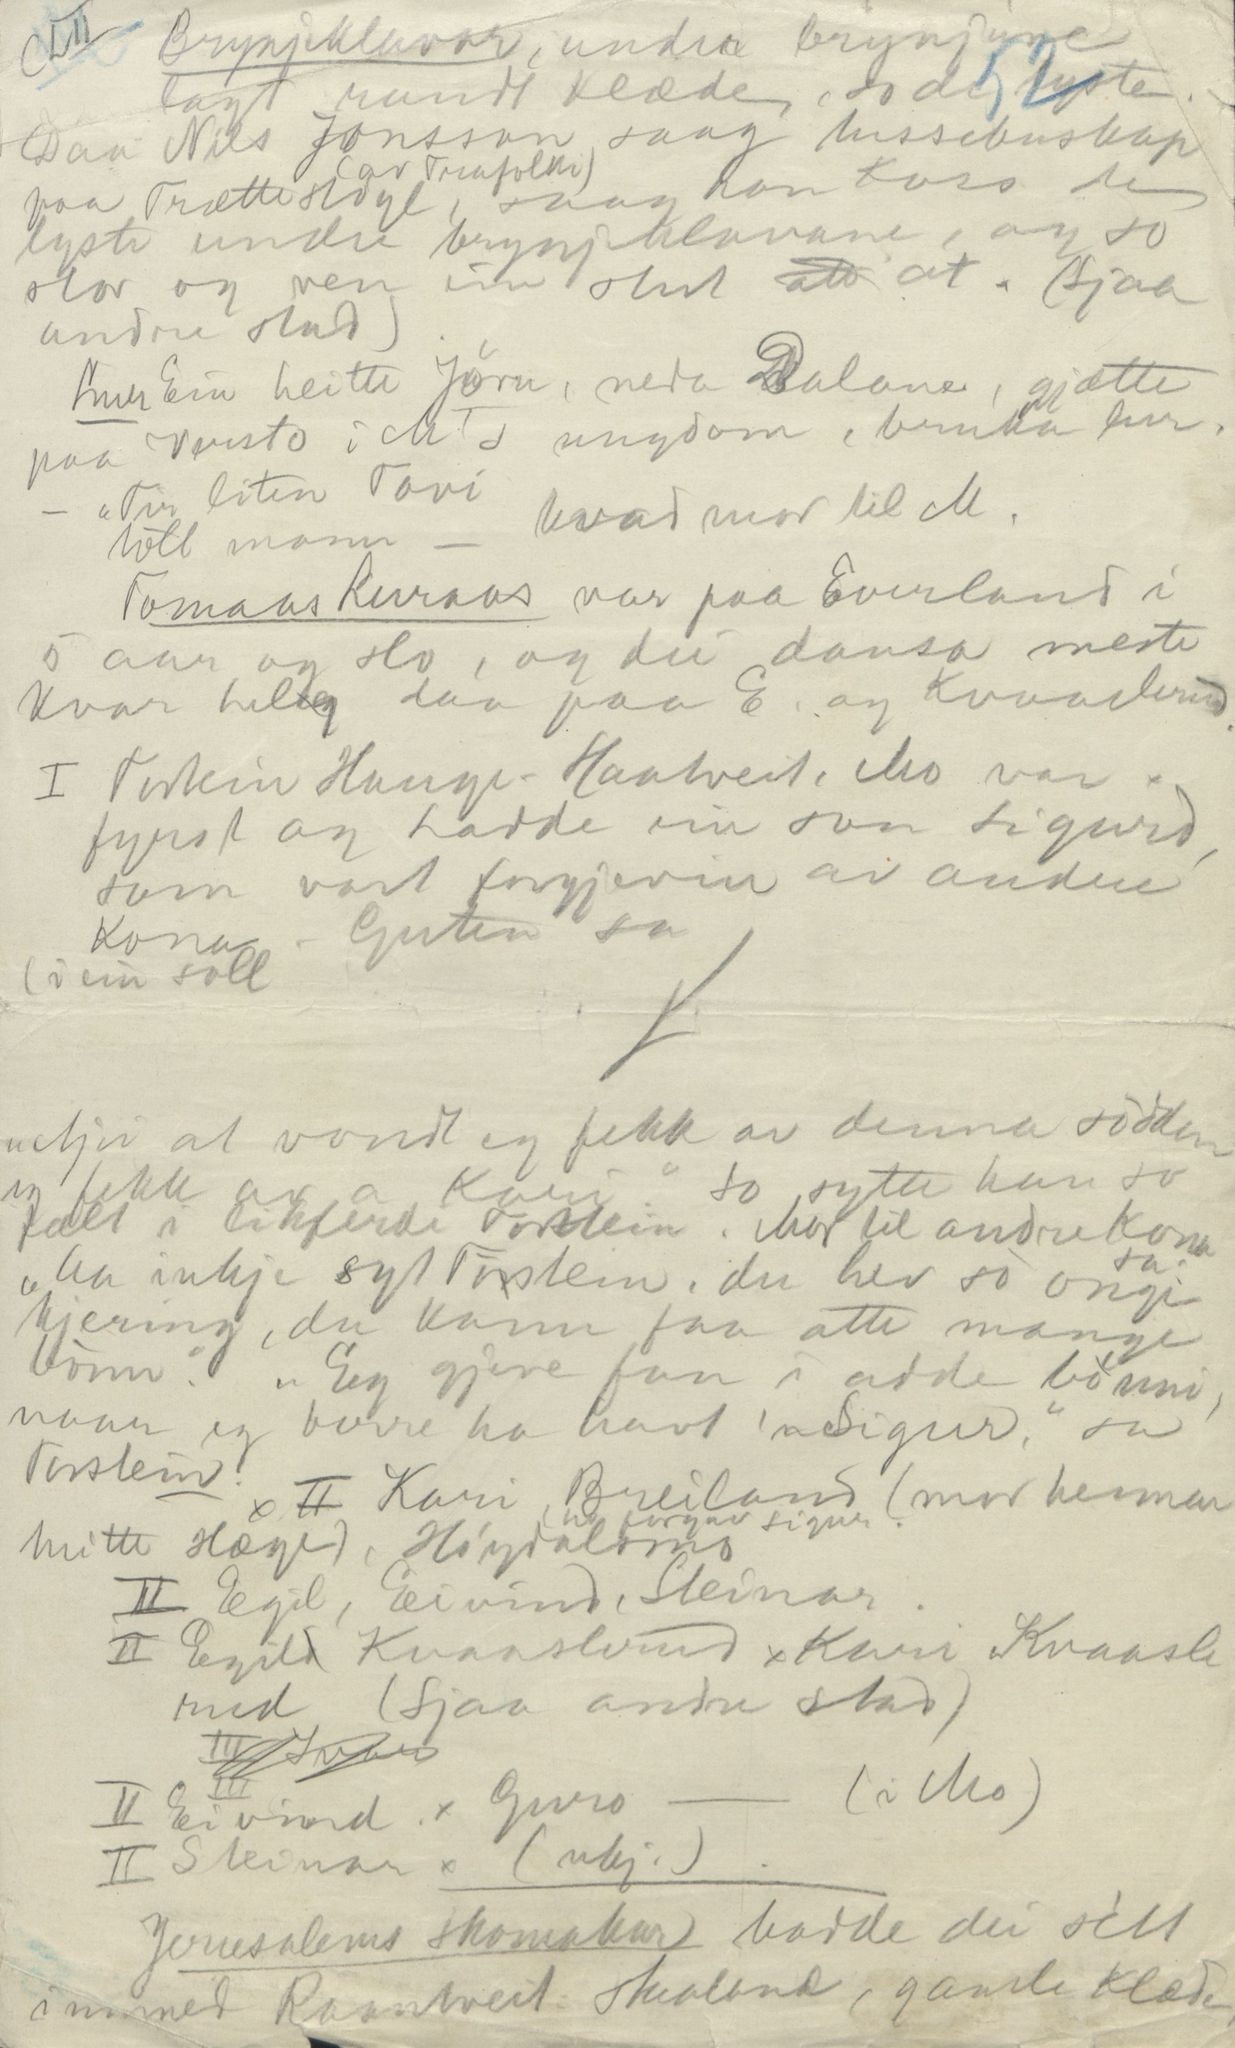 VII
52
Brynjeklavar, undra brynjune
lagt rundt klæde, so dei lyste.
Daa Nils Jonsson saag hussebuskap
(av Trufolki)
paa Trættestøyl, saag han koss dei
lyste undre brynjeklavane, og so
stor og ven ein stut at. (Sjaa
andre stad).
Lur Ein heitte Jörn, neda Dalane, gjætte
paa Versto i M T s ungdom, bruka lur.
- "Tir liten Tovi
töll mann - kvad mor til M.
Tomaas Luraas var paa Everland i
5 aar og slo, og dei dansa meste
kvar helg daa paa E. og Kvaaslerud.
I Torstein Hauge-Haatveit, Mo var
fyrst og hadde ein son Sigurd,
som vart forgjevin av andre
kona - Guten sa
(i ein soll
"Mjei at vondt eg fekk av denna södden
eg fekk av a Kari." So sytte han so
fælt i likferdi Torstein. Mor til andre kona
sa:
"Aa inkje syt Torstein, du hev so ongi
kjering, du kann faa atte mange
bönn." "Eg gjeve fan i adde bönni,
naar eg berre ha havt 'n Sigur," sa
Torstein.
x II Kari Breiland (mor hennar
ho forgav Sigur.
heitte Hæge), Höydalsmo
II Eegil, Eivind, Steinar.
II Eegil Kvaaslerud x Kari Kvaasle
rud (Sjaa andre stad)
III
III
II Eivind x Guro — (i Mo)
II Steinar x (ukj.).
Jerusalems skomakar hadde dei sétt
immed Raantveit. Skaland, gamle klæde,